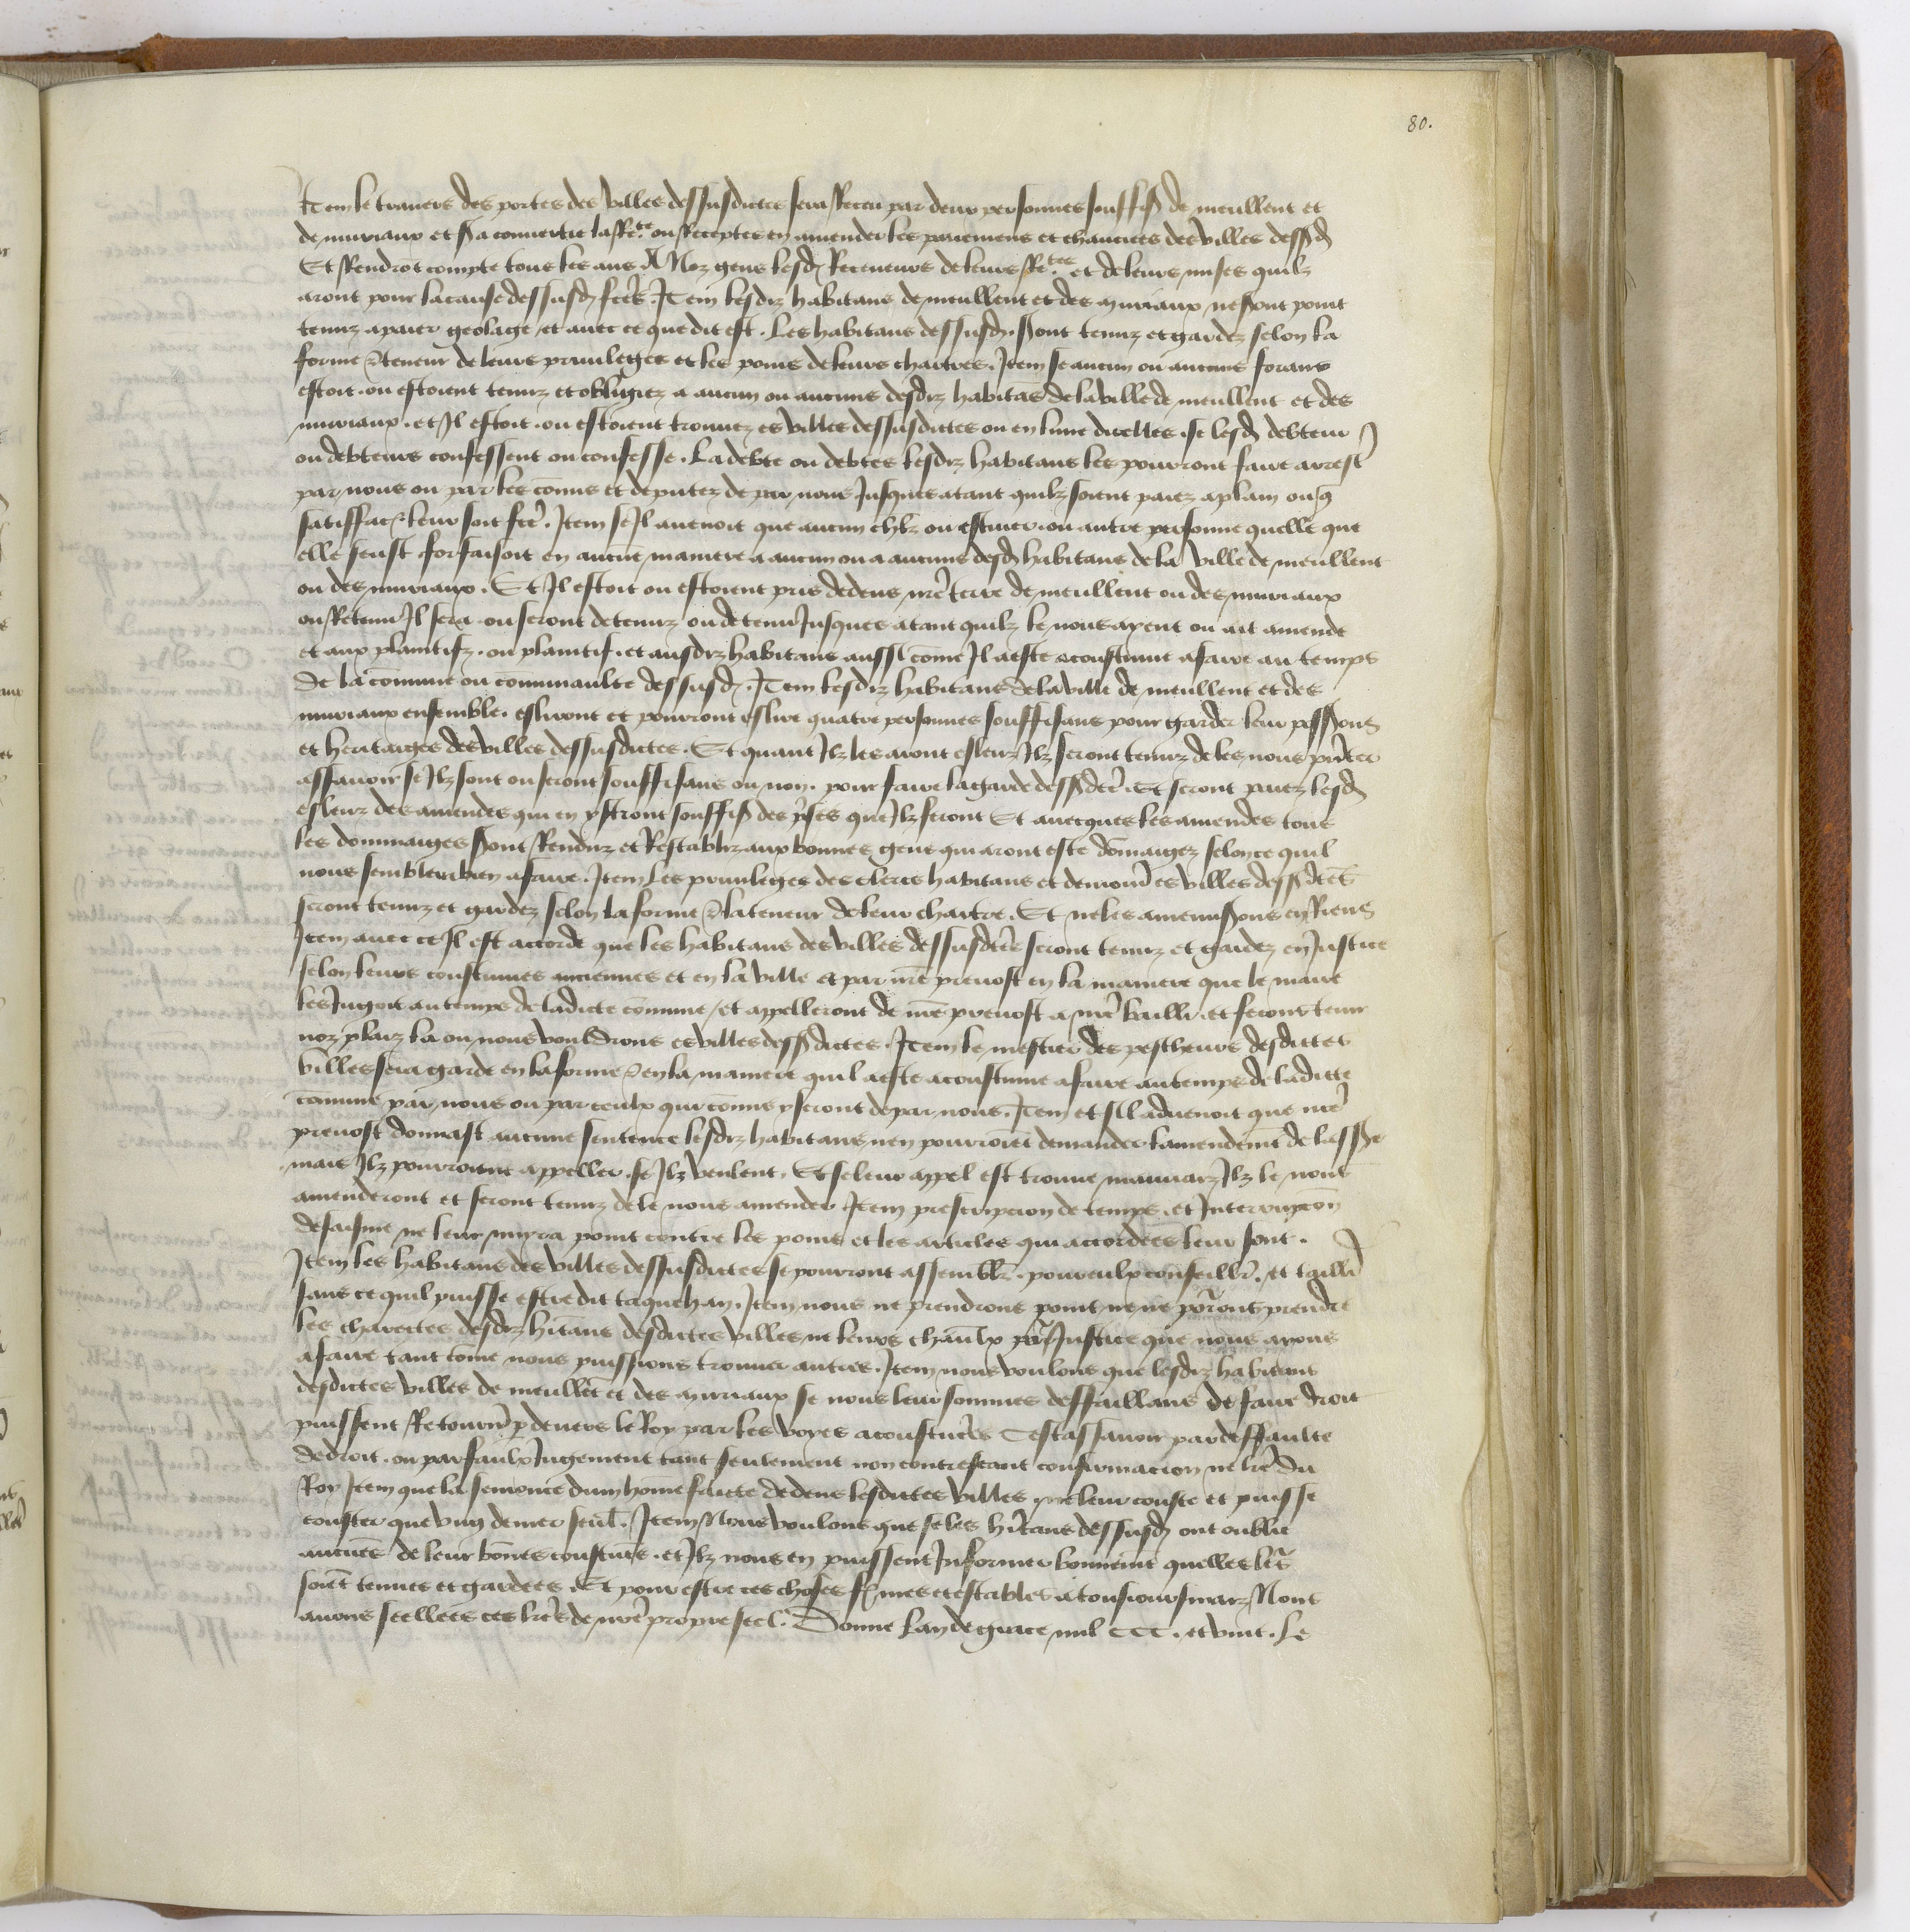 80.
Item le travers des portes des villes dessusdictes sera Receu par deux personnes souffis de meullent et
de muriaux et sa convertie la Recte ou Receptes en amender les pavemens et chaucies des villes dessusd
Et Rendrōt compte tous les ans A Noz gens lesd Receveurs de leurs Rectes et de leurs mises quilz
aront pour la cause dessusd fcēs. Item lesdiz habitans de meullent et des muriaux ne sont point
tenuz a paier geolage et avec ce que dit est. Les habitans dessusd. sont tenuz et gardez selon la
forme & teneur de leurs privileges et les poins de leurs chartres. Item se aucun ou aucuns forains
estoit. ou estoient tenuz et obligiez a aucun ou aucuns desdiz habitās de la ville de meullent et des
muriaux. et Il estoit. ou estoient trouvez es villes dessusdictes ou en lune dicelles. se lesd debteur
ou debteurs confessent ou confesse. La debte ou debtes lesdiz habitans les pourront faire arrest
par nous ou par les cōmis et deputez de par nous Jusques atant quilz soient paiez a plain ou q
satiffac leur soit fcē. Item se Il avenoit que aucun chlr ou escuier. ou autre personne quelle que
elle feust forfaisoit en aucūe maniere a aucun ou a aucuns desd habitans de la ville de meullent
ou des muriaux. Et Il estoit ou estoient pris dedens nrē terre de meullent ou des muriaux
ou Retenu Il sera. ou seront detenuz ou detenu Jusques atant quilz le nous ayent ou ait amende
et aux plaintifz. ou plaintif. et ausdiz habitans aussi cōme Il a este acoustume a faire au temps
de la cōmune ou communaulte dessusd. Item lesdiz habitans de la ville de meullent et des
muriaux ensemble. esliront et pourront eslire quatre personnes souffisans pour garder leur possions
et heritaiges des villes dessusdictes. Et quant Ilz les aront esleuz Ilz seront tenuz de les nous pnter
assavoir se Ilz sont ou seront souffisans ou non. pour faire la garde dessdcē. Et seront paiez lesd
esleuz des amendes qui en ystront souffis des pses que Ilz feront Et avecques les amendes tous
les dommaiges sont Renduz et Restabliz aux bonnes gens qui aront este dōmaigez selon ce quil
nous semblera bien a faire. Item Les privileges des clercs habitans et demour es villes dessdcēs
seront tenuz et gardez selon la forme & la teneur de leur chartre. Et ne les amenusons en Riens
Item avec ce Il est accorde que les habitans des villes dessusdcēs seront tenuz et gardez en Justice
selon leurs coustumes anciennes et en la ville et par nrē prevost en la maniere que le maire
les Jugoit au temps de ladicte cōmune / et appelleront de nrē prevost a nrē bailli. et feront tenir
noz plaiz la ou nous vouldrons es villes dessdictes. Item le mestier des pescheurs desdictes
villes sera garde en la forme & en la maniere quil a este acoustume a faire au temps de ladicte
cōmune par nous ou par ceulx qui cōmis y seront de par nous. Item et sIl advenoit que nrē
prevost donnast aucune sentence lesdiz habitans nen pourroiēt demander lamendemēt de lasse
mais Ilz pourroient appeller. se Ilz veulent. Et se leur appel est trouve mauvaiz Ilz le nous
amenderont et seront tenuz de le nous amender Item prescripcion de temps. et Interrupcōn
de saisine ne leur nuyra point contre les poins et les articles qui accordees leur sont.
Item les habitans des villes dessusdictes se pourront assembler. pour eulx conseillr. et taillr
sans ce quil puisse estre dit taquehan. Item nous ne prendrons point ne ne porons prendre
les charettes desdiz hitans desdictes villes ne leurs chāulx par Justice que nous ayons
a faire tant cōme nous puissions trouver autres. Item nous voulons que lesdiz habitans
desdictes villes de meullēt et des muriaux se nous leur sommes deffaillans de faire droit
puissent Retourn pdevers le Roy par les voyes acoustuēes Cest assavoir par deffaulte
de droit. ou par faulx Jugement tant seulement non contrestant confirmacion ne lrē du
Roy Item que la semonce dun hōme faicte dedens lesdictes villes ne leur couste et puisse
couster que ung denier seul. Item Nous voulons que se les hitans dessusd ont oublie
aucūes de leur bōnes coustūes. et Ilz nous en puissent Informer bonnemēt quelles leur
soiēt tenues et gardees. Et pour estre ces choses fermes et estables a tousiours maiz Nous
avons seellees ces lrēs de nrē propre seel. Donne Lan de grace mil CCC. et vint. Le